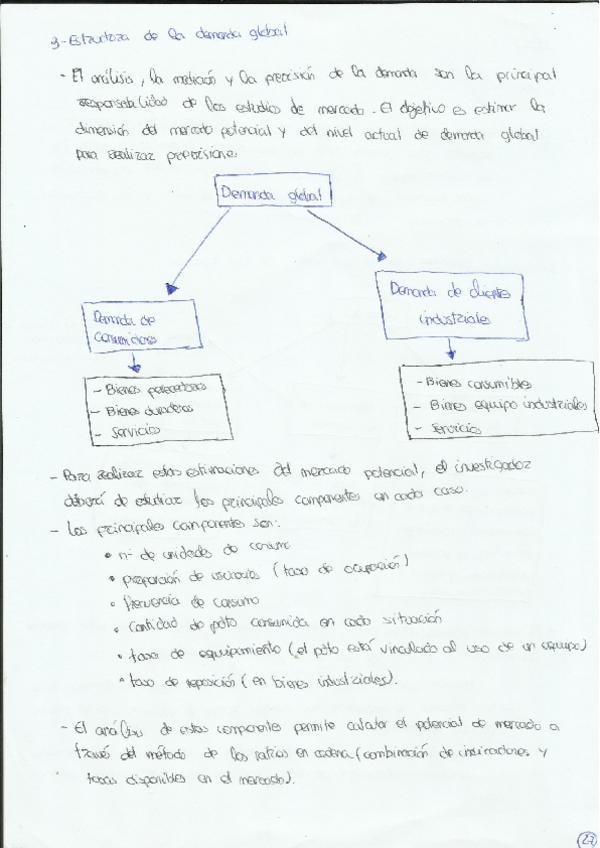 3-Estructura de la demanda global
- El análisis, la medición y la precisión de la demanda son la principal
responsabilidad de los estudios de mercado. El objetivo es estimar la
dimensión del mercado potencial y del nivel actual de demanda global
para realizar previsiones.
Demanda global
Demanda de
consumidores
Demanda de clientes
industriales
- Bienes perecederos
- Bienes duraderos
- Servicios
- Bienes consumibles
- Bienes equipo industriales
- Servicios
- Para realizar estas estimaciones del mercado potencial, el investigador
deberá de estudiar los principales componentes en cada caso.
- Los principales componentes son:
• nº de unidades de consumo
• proporción de usuarios (tasa de ocupación)
• frecuencia de consumo
• cantidad de pdto consumida en cada situación
• tasa de equipamiento (el pdto está vinculado al uso de un equipo)
• tasa de reposición (en bienes industriales).
- El análisis de estos componentes permite calcular el potencial de mercado a
través del método de los ratios en cadena (combinación de indicadores y
tasas disponibles en el mercado).
27